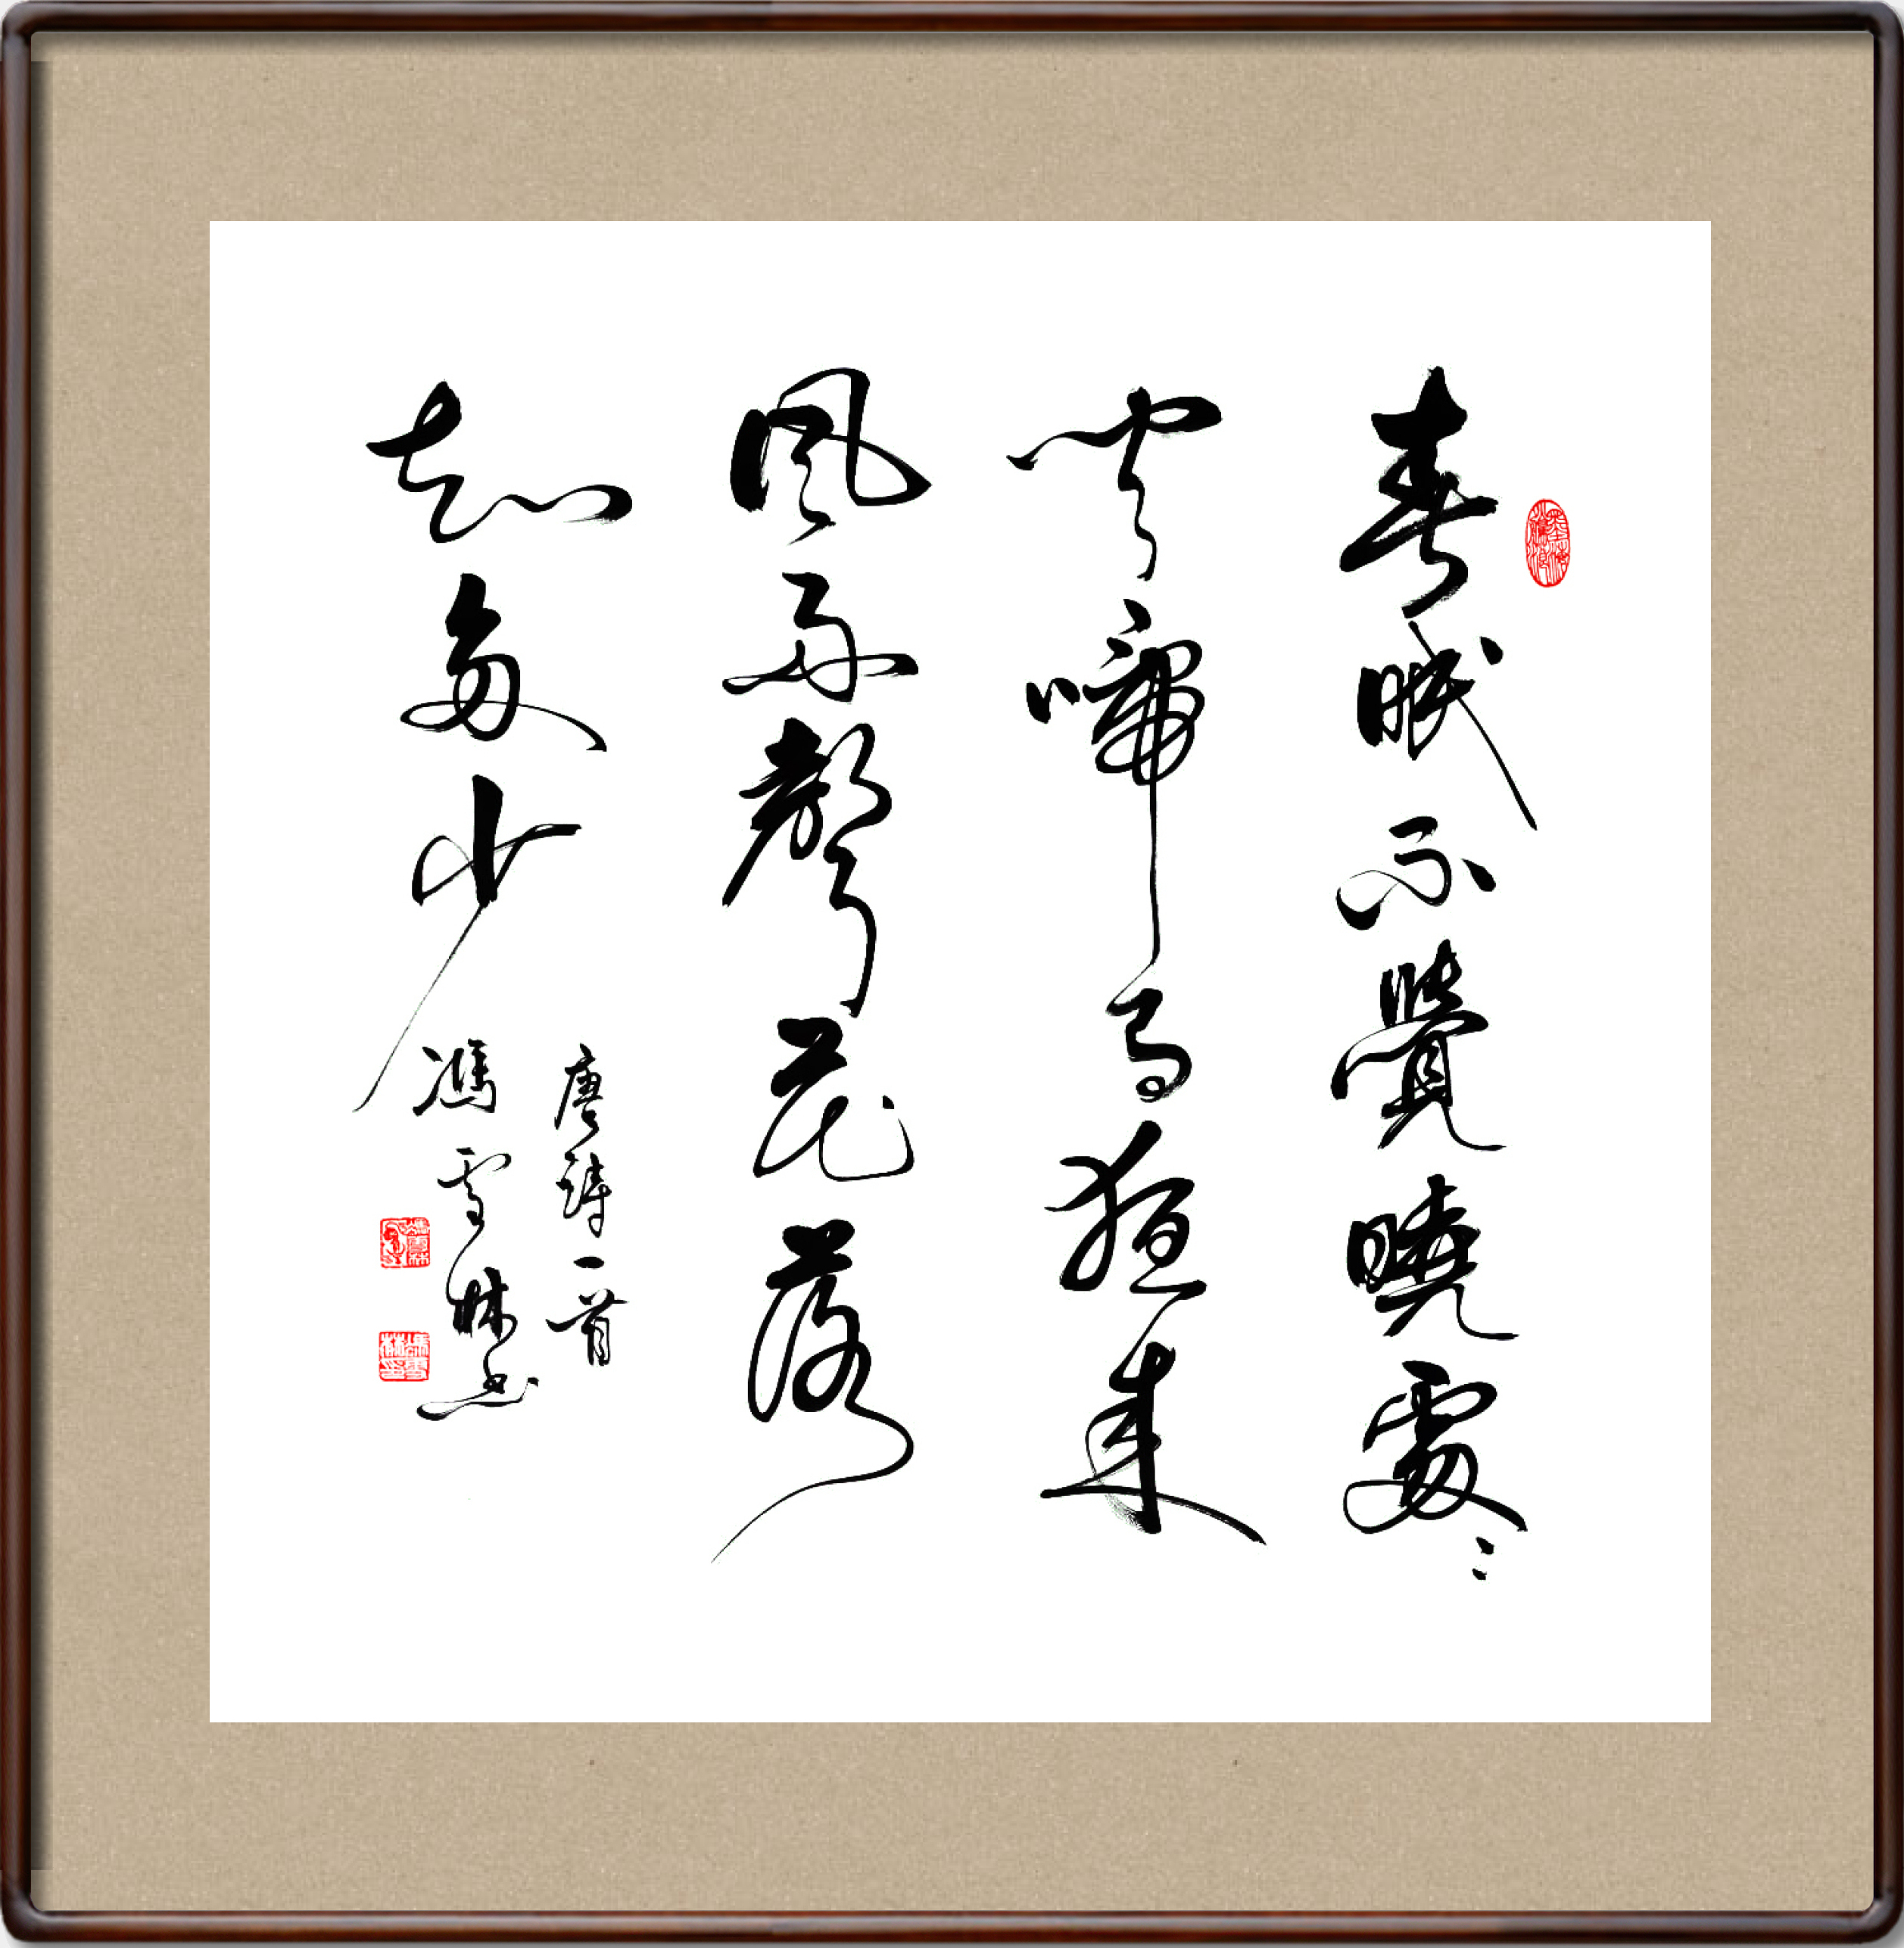 春眠不覺曉處〻
聞啼鳥來
風雨聲花落
知多少
唐詩一首
馮雪林書
馮雪林印